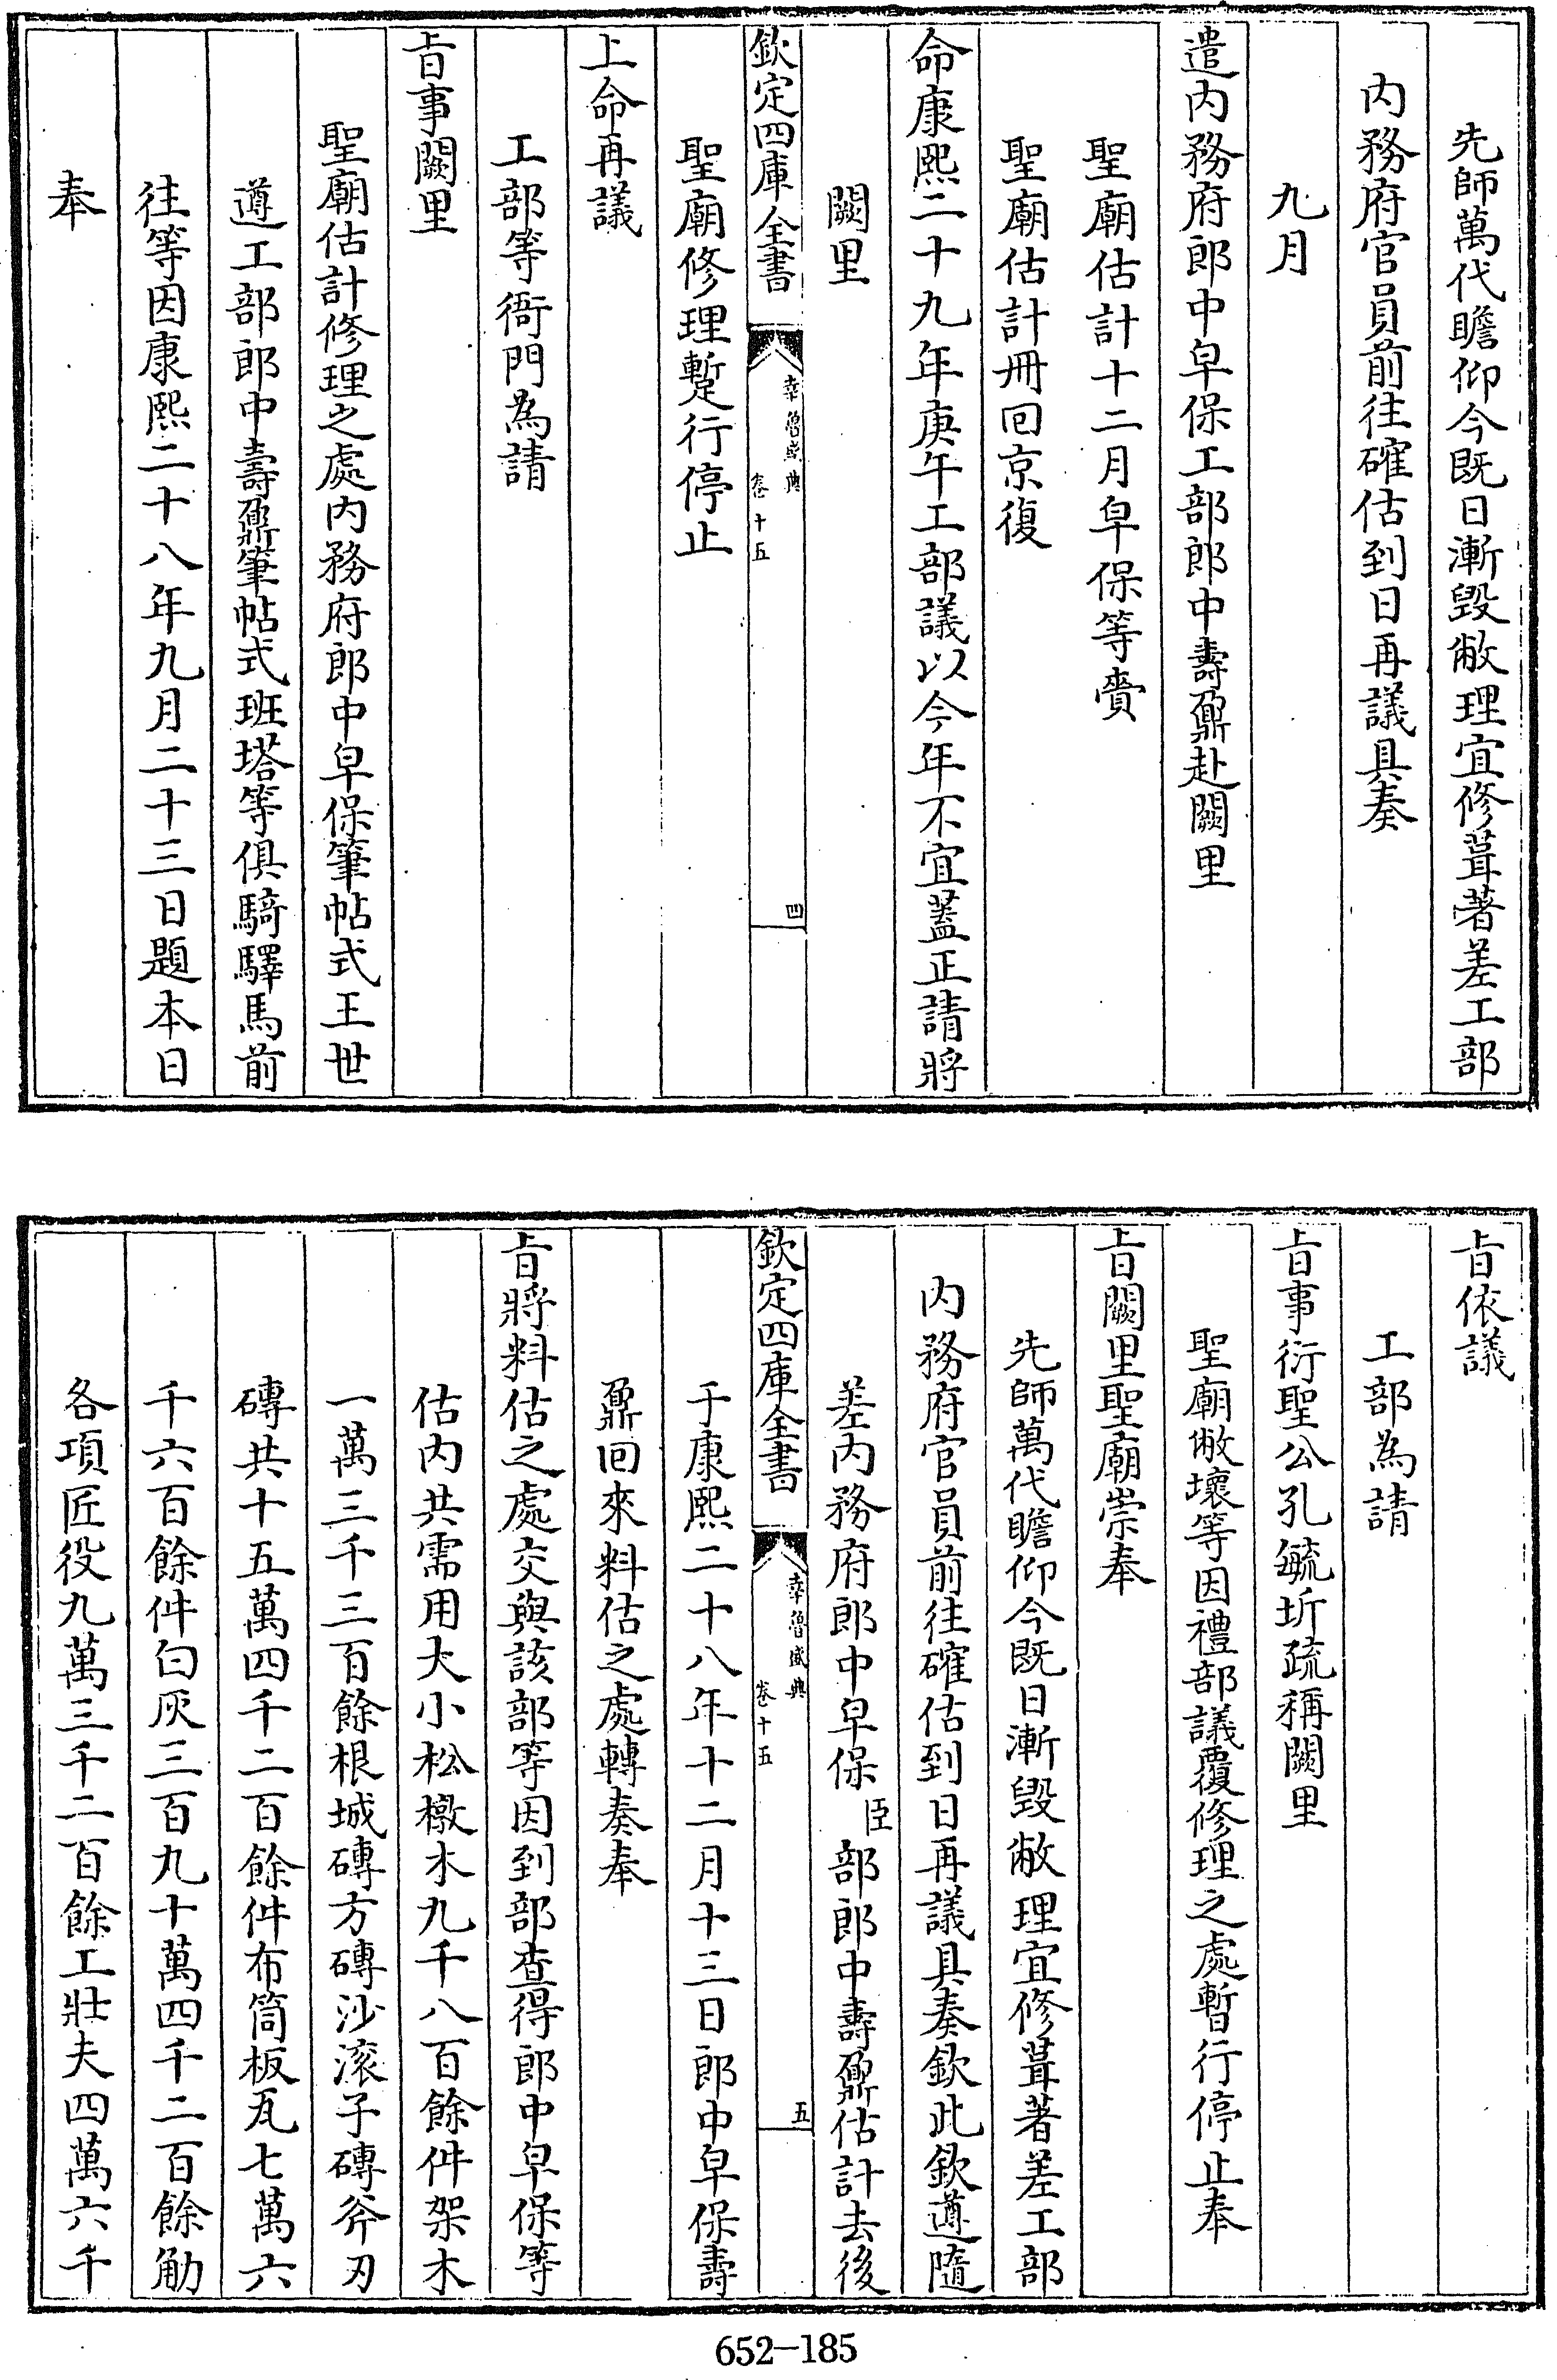 先師萬代瞻仰今既日漸毀敝理宜修葺著差工部
内務府官員前往確估到日再議具奏
九月
遣内務府郎中皁保工部郎中壽鼐赴闕里
聖廟估計十二月皁保等賫
聖廟估計冊回京復
命康熙二十九年庚午工部議以今年不宜蓋正請將
闕里
欽定四庫全書
幸魯盛典
卷十五
四
聖廟修理蹔行停止
上命再議
工部等衙門為請
旨事闕里
聖廟估計修理之處内務府郎中皁保筆帖式王世
遴工部郎中壽鼐筆帖式班塔等俱騎驛馬前
往等因康熙二十八年九月二十三日題本日
奉
旨依議
工部為請
旨事衍聖公孔毓圻疏稱闕里
聖廟敝壞等因禮部議覆修理之處暫行停止奉
旨闕里聖廟崇奉
先師萬代瞻仰今既日漸毀敝理宜修葺著差工部
内務府官員前往確估到日再議具奏欽此欽遵隨
差内務府郎中皁保臣部郎中壽鼐估計去後
欽定四庫全書
幸魯盛典
卷十五
五
于康熙二十八年十二月十三日郎中皁保壽
鼐回來料估之處轉奏奉
旨將料估之處交與該部等因到部查得郎中皁保等
估内共需用大小松橔木九千八百餘件架木
一萬三千三百餘根城磚方磚沙滚子磚斧刃
磚共十五萬四千二百餘件布筒板瓦七萬六
千六百餘件白灰三百九十萬四千二百餘觔
各項匠役九萬三千二百餘工壯夫四萬六千
652-185